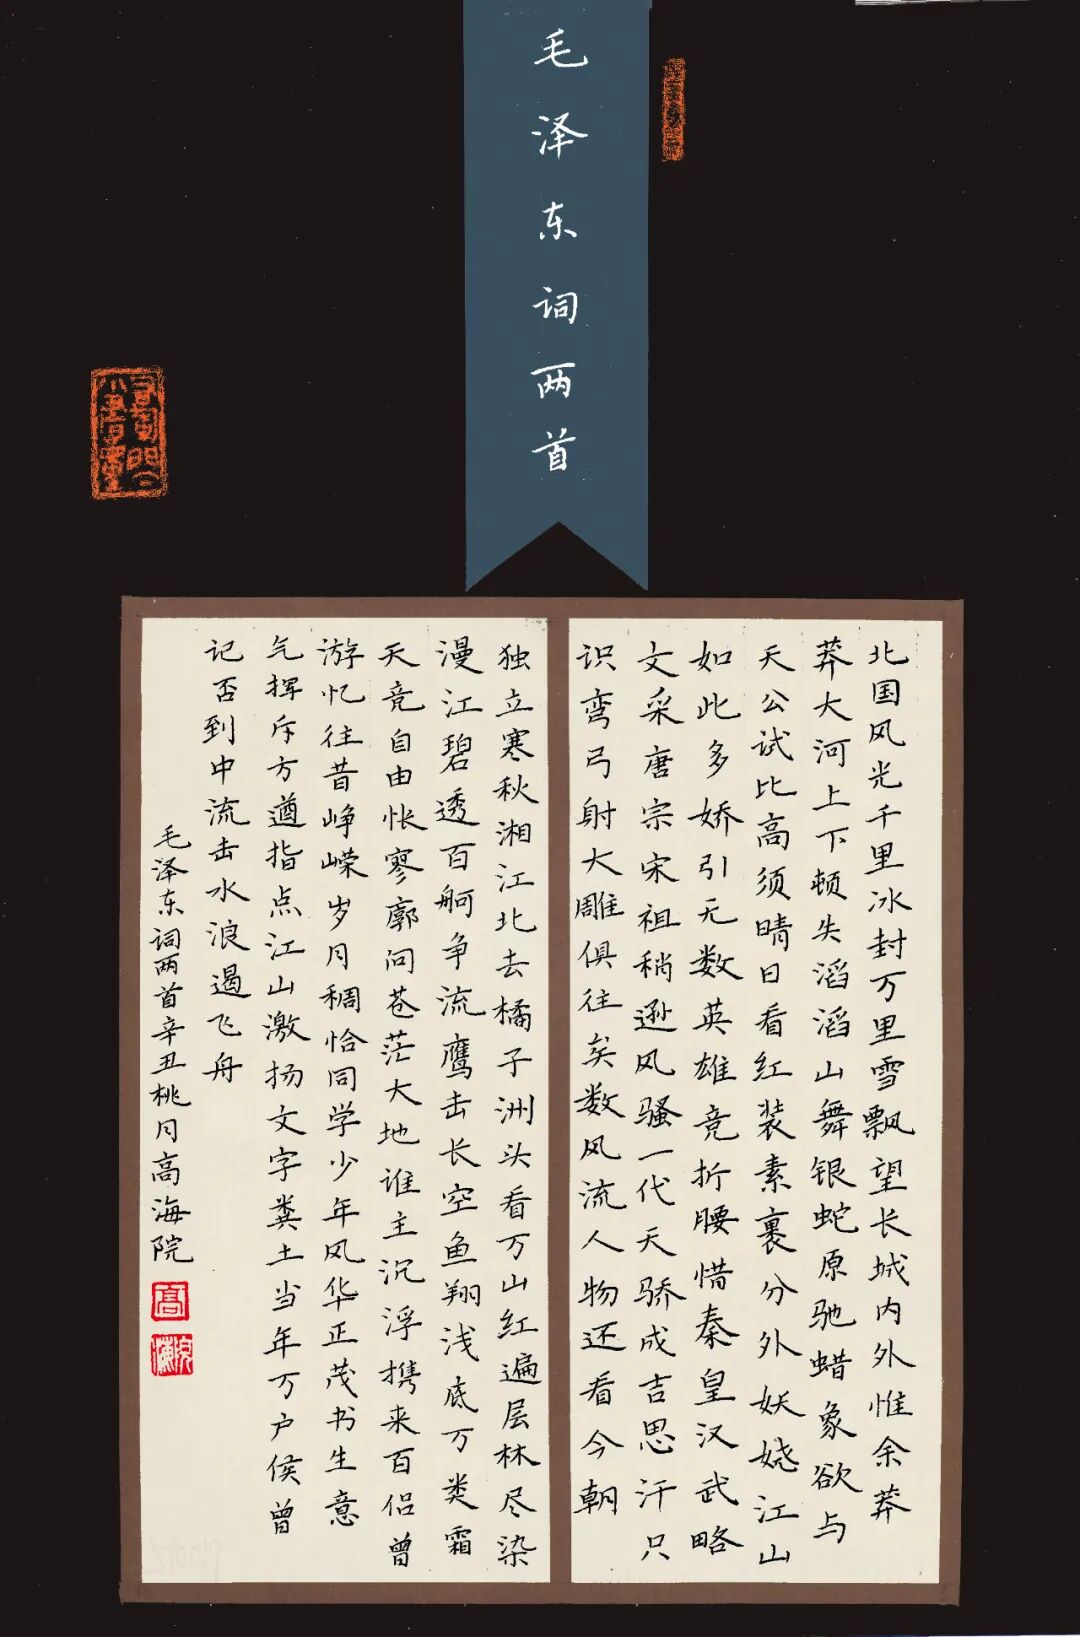 毛泽东词两首
北国风光千里冰封万里雪飘望长城内外惟余莽
莽大河上下顿失滔滔山舞银蛇原驰蜡象欲与
天公试比高须晴日看红装素裹分外妖娆江山
如此多娇引无数英雄竞折腰惜秦皇汉武略
文采唐宗宋祖稍逊风骚一代天骄成吉思汗只
识弯弓射大雕俱往矣数风流人物还看今朝
独立寒秋湘江北去橘子洲头看万山红遍层林尽染
漫江碧透百舸争流鹰击长空鱼翔浅底万类霜
天竞自由怅寥廓问苍茫大地谁主沉浮携来百侣曾
游忆往昔峥嵘岁月稠恰同学少年风华正茂书生意
气挥斥方遒指点江山激扬文字粪土当年万户侯曾
记否到中流击水浪遏飞舟
毛泽东词两首辛丑桃月高海院
高